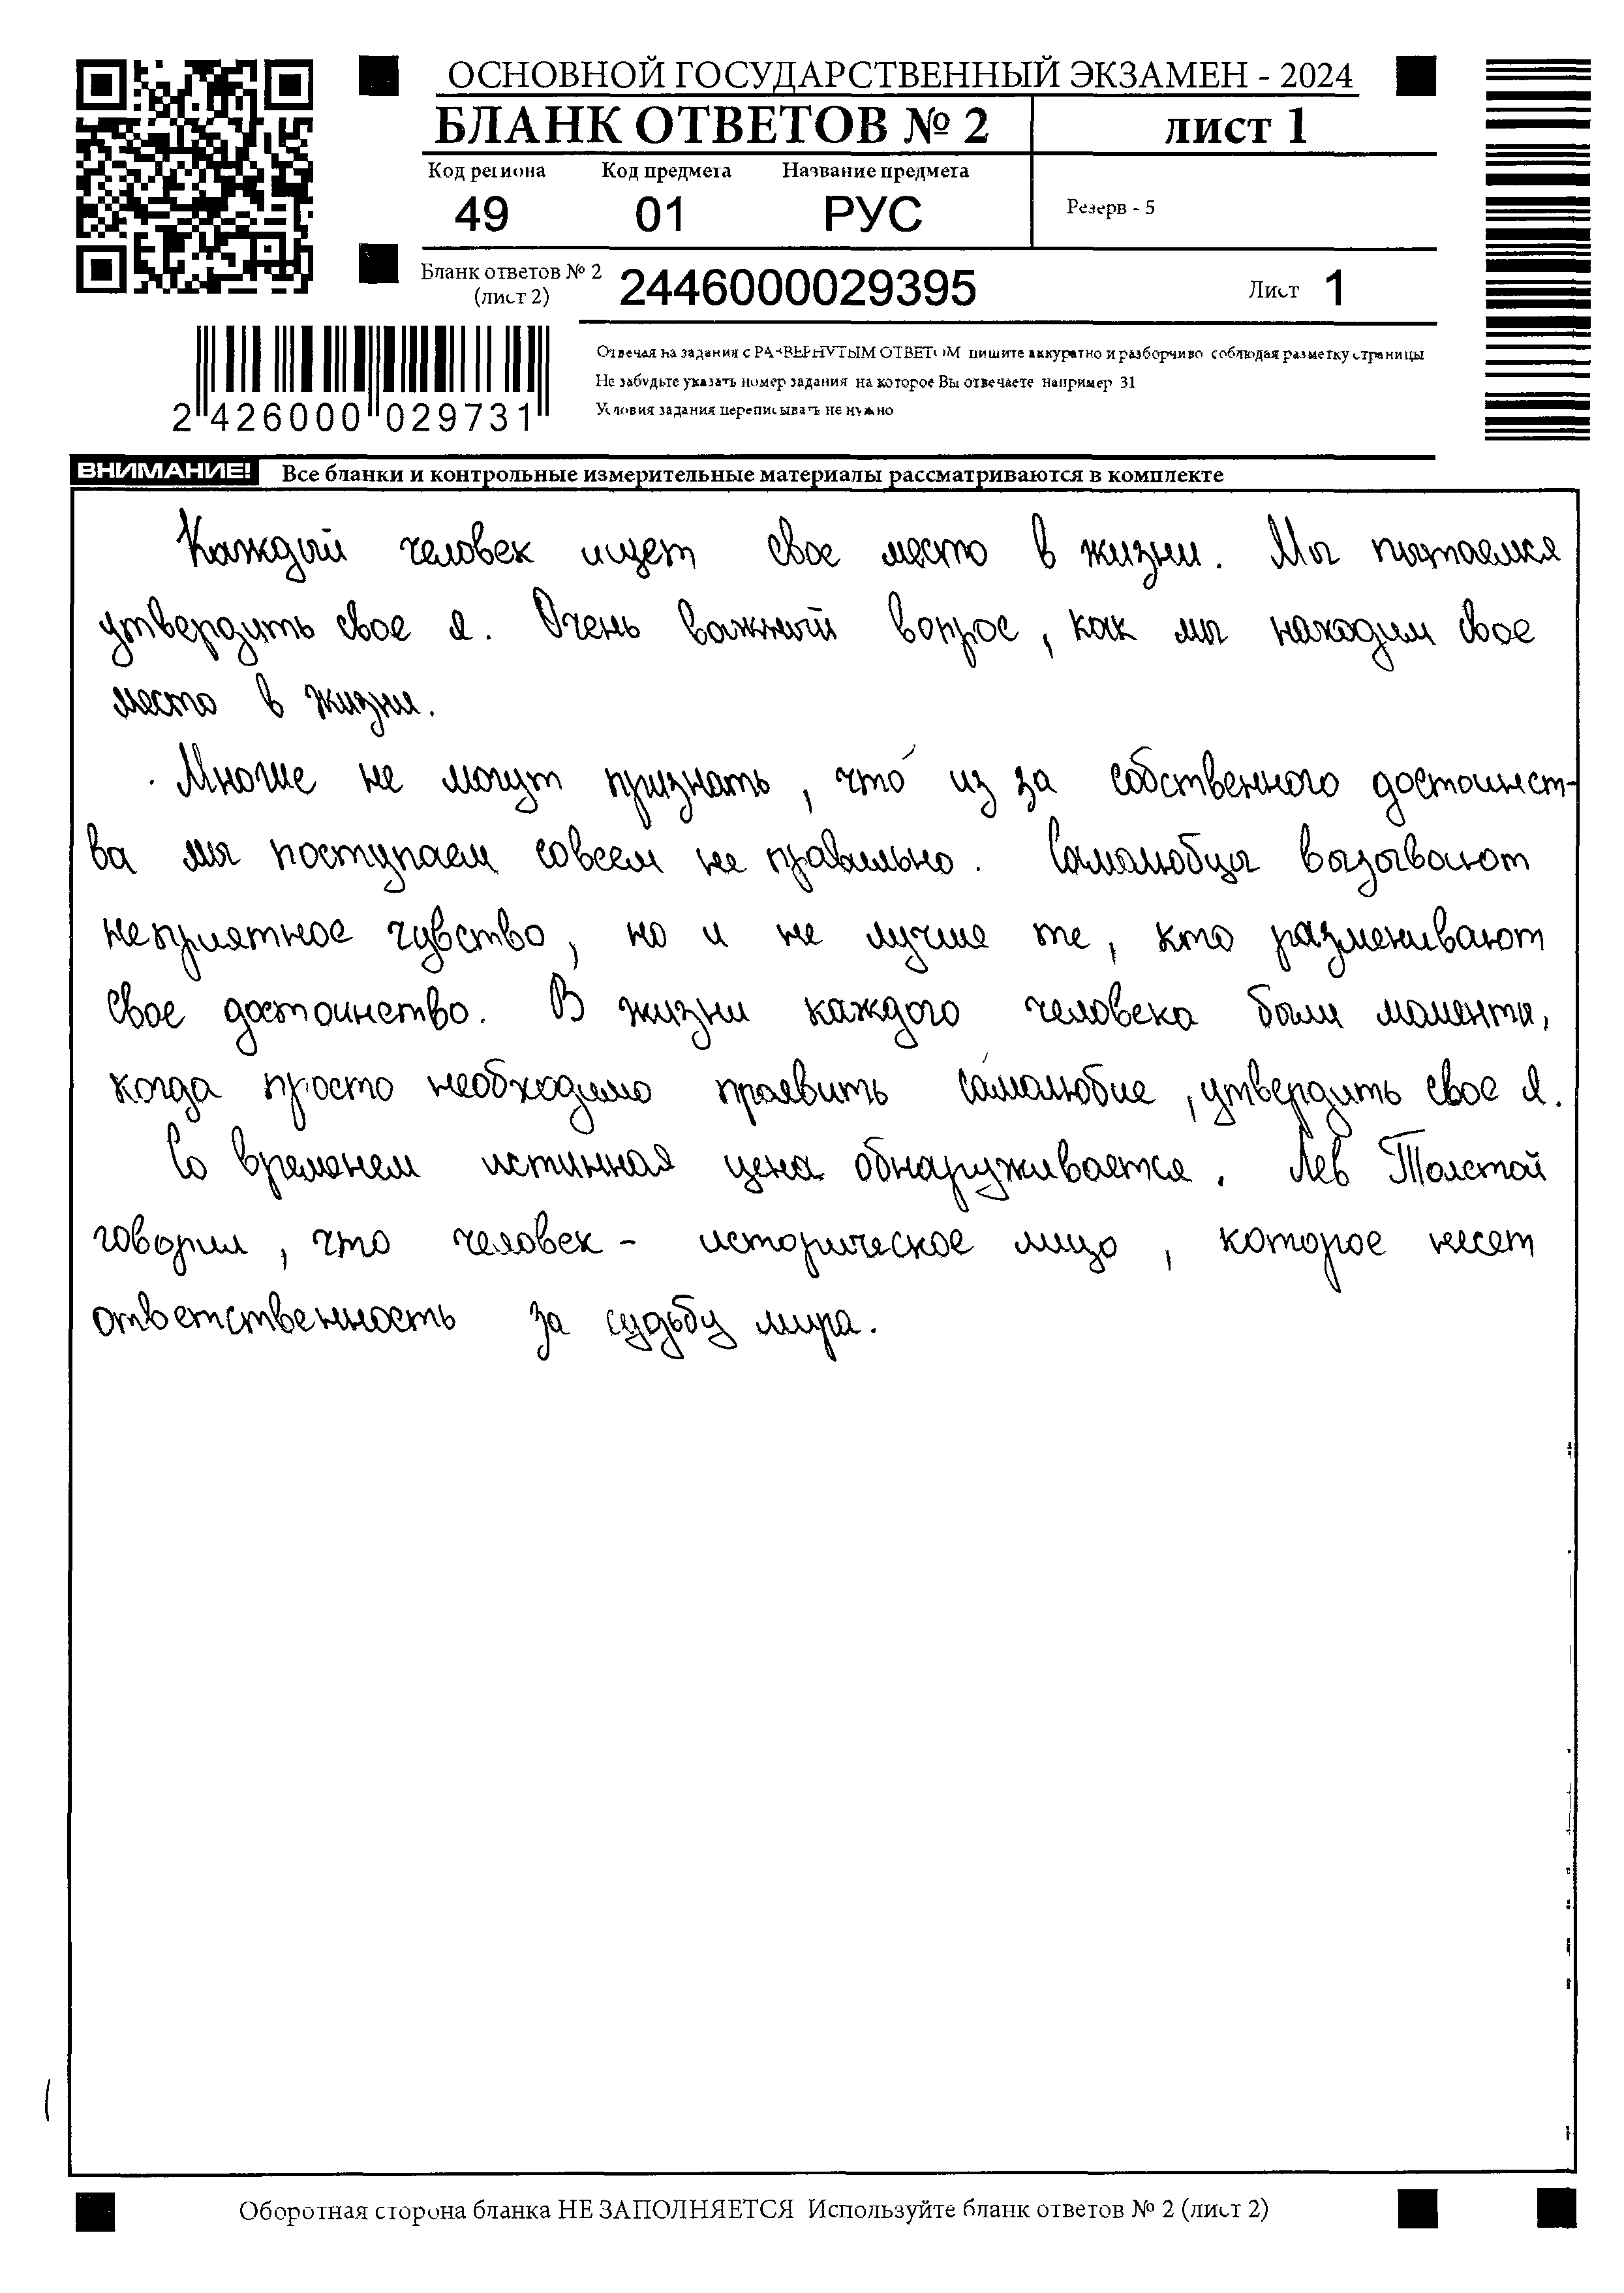 ОСНОВНОЙ ГОСУДАРСТВЕННЫЙ ЭКЗАМЕН - 2024
БЛАНК ОТВЕТОВ № 2
лист 1
Код региона
Код предмета
Название предмета
49
01
РУС
Резерв - 5
Бланк ответов № 2
(лист 2)
2446000029395
Лист 1
Отвечая на задания с РАЗВЕРНУТЫМ ОТВЕТОМ пишите аккуратно и разборчиво соблюдая разметку страницы
Не забудьте указать номер задания на которое Вы отвечаете например 31
Условия задания переписывать не нужно
2 426000 029731
ВНИМАНИЕ! Все бланки и контрольные измерительные материалы рассматриваются в комплекте
Каждый человек ищет свое место в жизни. Мы пытаемся
утвердить свое я. Очень важный вопрос, как мы находим свое
место в жизни.
Многие не могут признать, что из за собственного достоинст-
ва мы поступаем совсем не правильно. Самолюбцы вызывают
неприятное чувство, но и не лучше те, кто разменивают
свое достоинство. В жизни каждого человека были моменты,
когда просто необходимо проявить самолюбие, утвердить свое я.
Со временем истинная цена обнаруживается. Лев Толстой
говорил, что человек - историческое лицо, которое несет
ответственность за судьбу мира.
Оборотная сторона бланка НЕ ЗАПОЛНЯЕТСЯ Используйте бланк ответов № 2 (лист 2)